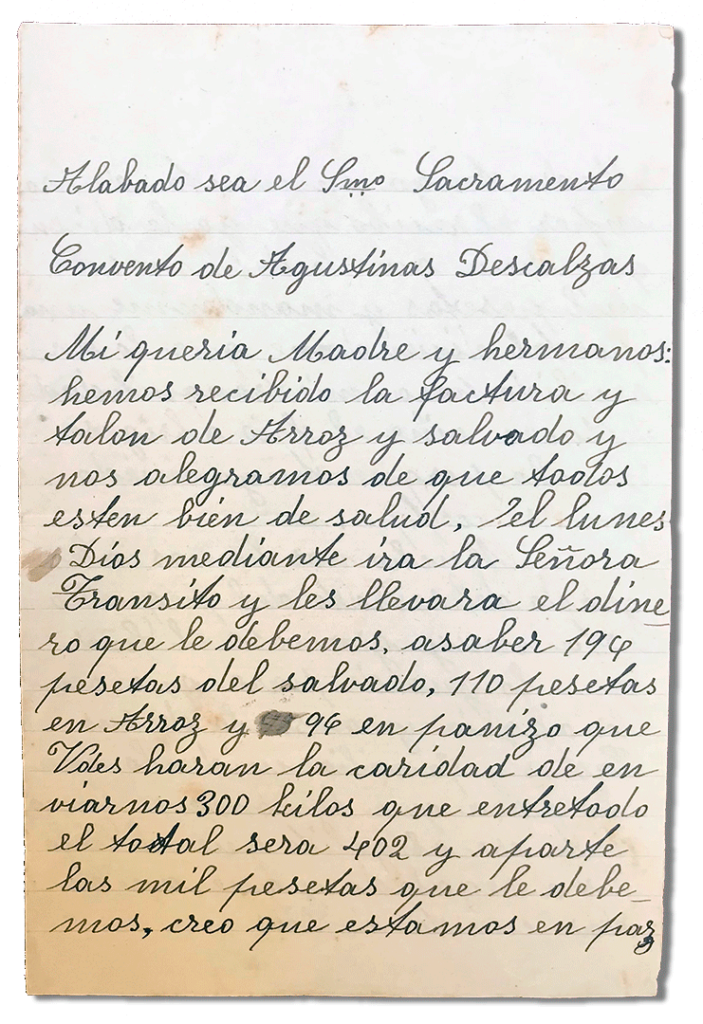 Alabado sea el Smo Sacramento
Convento de Agustinas Descalzas
Mi queria Madre y hermanos:
hemos recibido la factura y
talon de Arroz y salvado y
nos alegramos de que todos
esten bien de salud, el lunes
Dios mediante ira la Señora
Transito y les llevara el dine_
ro que le debemos, asaber 196
pesetas del salvado, 110 pesetas
en Arroz y 96 en panizo que
Vdes haran la caridad de en
viarnos 300 kilos que entretodo
el total sera 402 y aparte
las mil pesetas que le debe_
mos, creo que estamos en paz